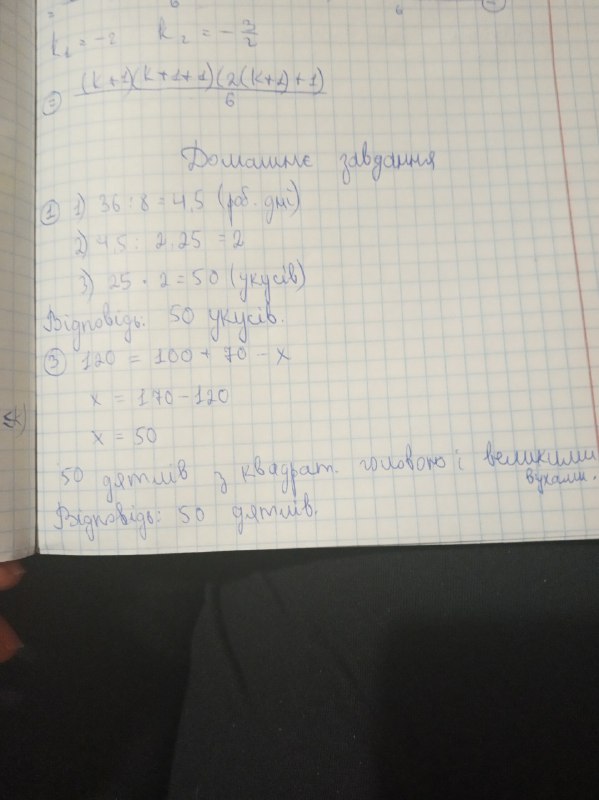 =
6
6
k₁ = -2 k₂ = - 3/2
= (k+1)(k+1+1)(2(k+1)+1)
6
Домашнє завдання
① 1) 36 : 8 = 4,5 (роб. дні)
2) 4,5 : 2,25 = 2
3) 25 · 2 = 50 (укусів)
Відповідь: 50 укусів.
③ 120 = 100 + 70 - x
x = 170 - 120
x = 50
50 дятлів з квадрат. головою і великими
вухами.
Відповідь: 50 дятлів.